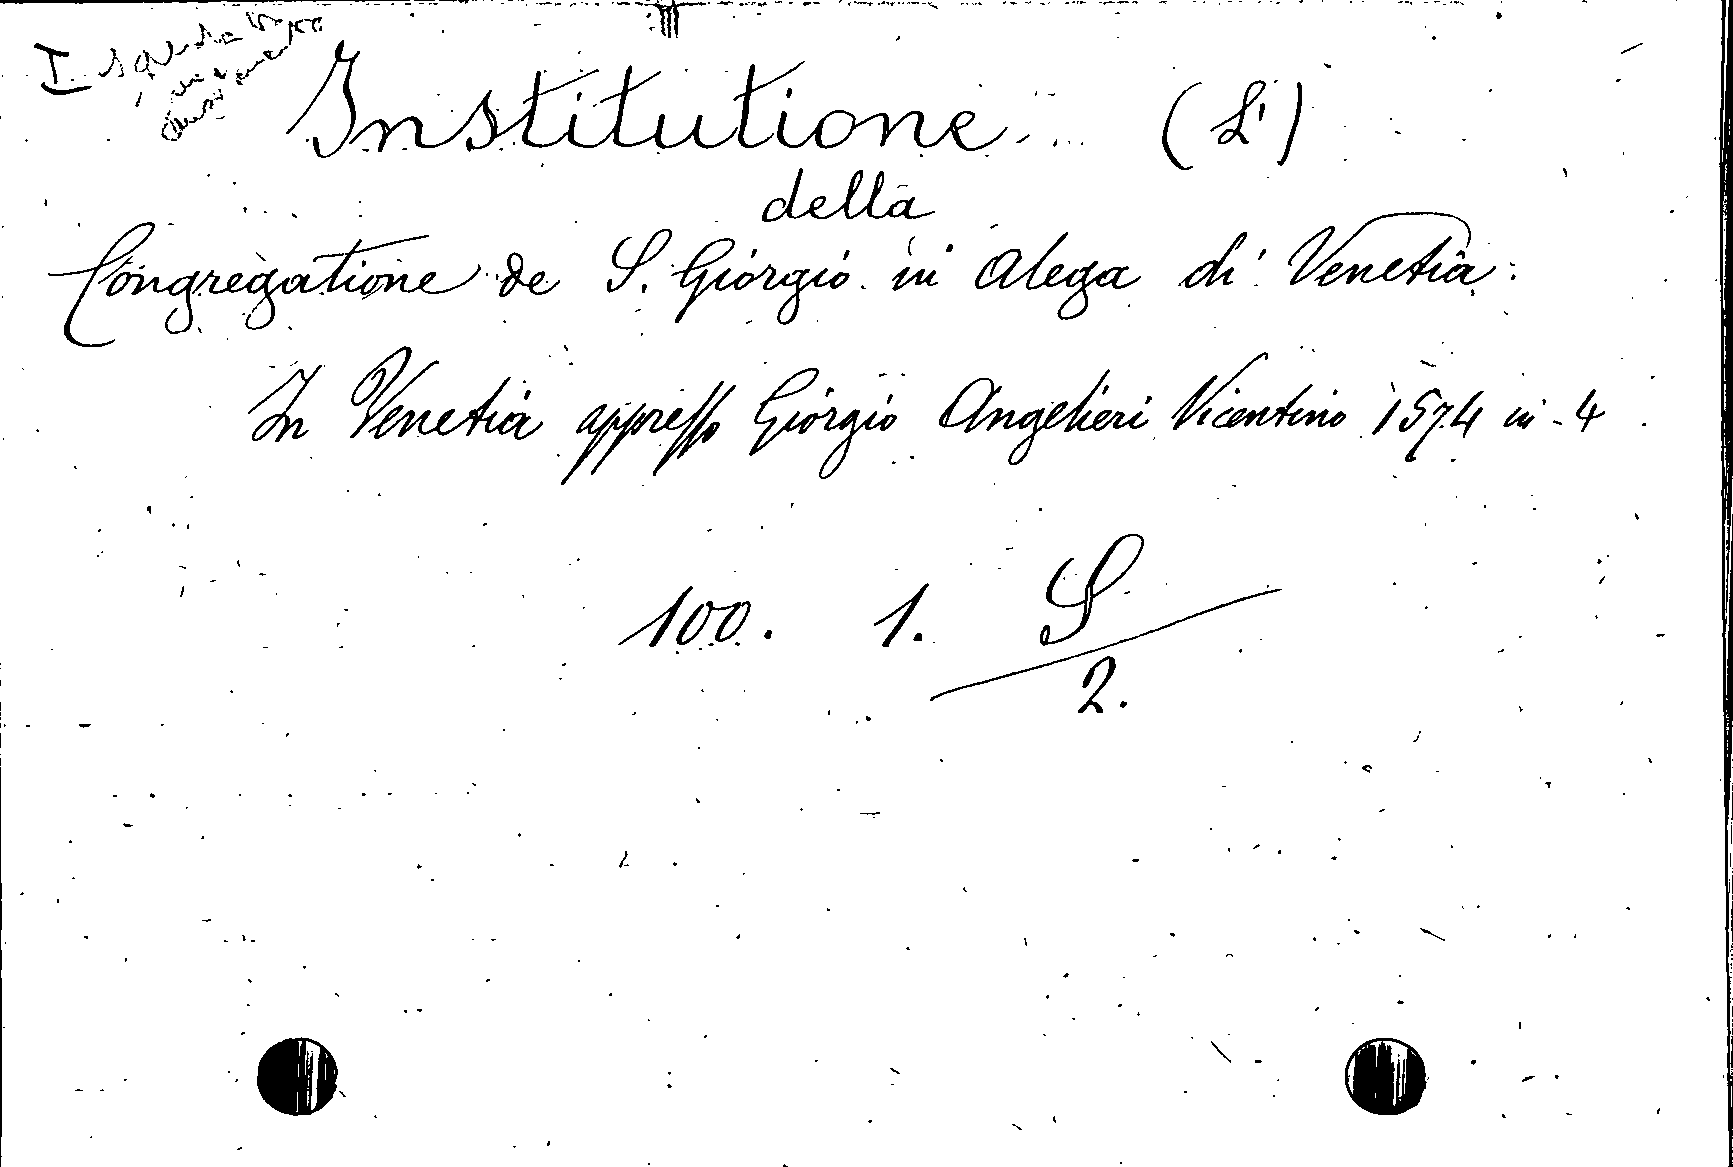 Institutione (L')
della
Congregatione de S. Giorgio in Alega di Venetia.
In Venetia appresso Giorgio Angelieri Vicentino 1574 in-4
100. 1. S
2.